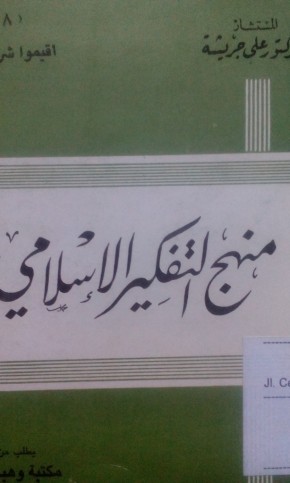 المستشار
دكتور على جريشة
(٨)
اقيموا شر
منهج التفكير الإسلامي
Jl. Co
يطلب من
مكتبة وهبة